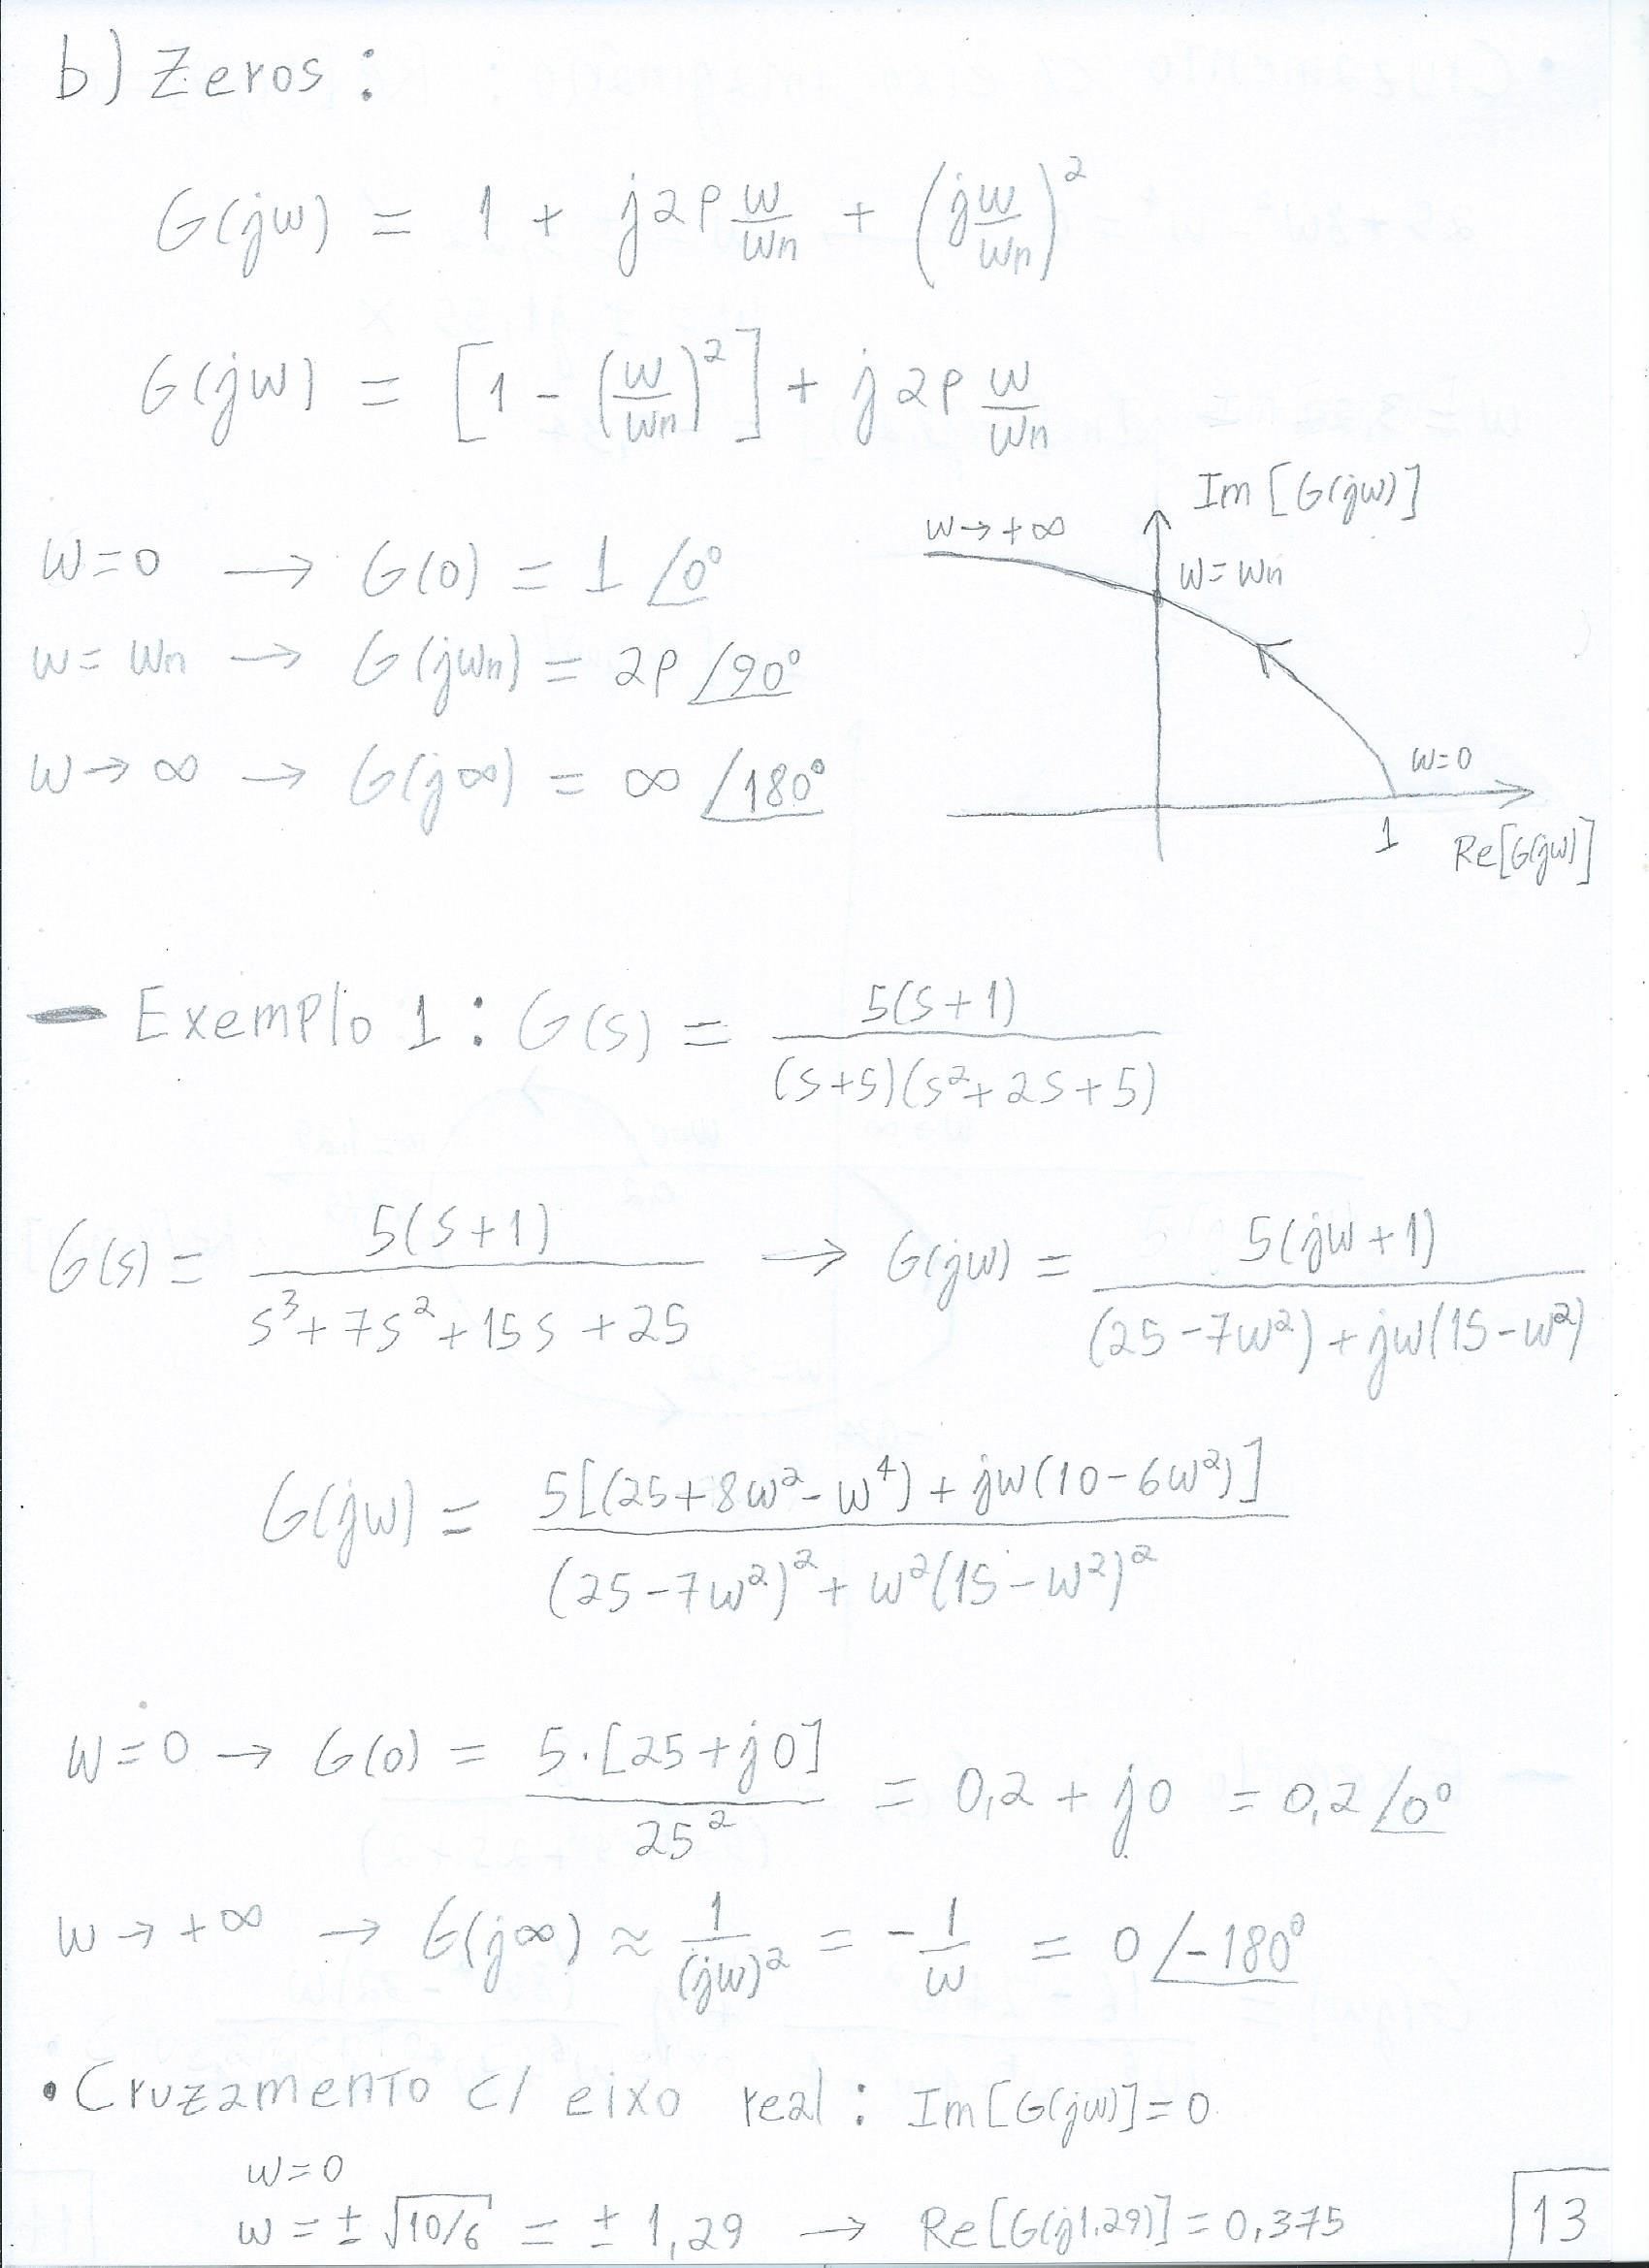 b) Zeros:
G(jw) = 1 + j2ρ w/wn + (jw/wn)²
G(jw) = [1 - (w/wn)²] + j2ρ w/wn
Im[G(jw)]
w→+∞
w=wn
w=0 → G(0) = 1 ∠0°
w=wn → G(jwn) = 2ρ ∠90°
w→∞ → G(j∞) = ∞ ∠180°
w=0
1
Re[G(jw)]
- Exemplo 1: G(s) = 5(s+1) / (s+5)(s²+2s+5)
G(s) = 5(s+1) / s³+7s²+15s+25 → G(jw) = 5(jw+1) / (25-7w²)+jw(15-w²)
G(jw) = 5[(25+8w²-w⁴)+jw(10-6w²)] / (25-7w²)²+w²(15-w²)²
w=0 → G(0) = 5·[25+j0] / 25² = 0,2+j0 = 0,2 ∠0°
w→+∞ → G(j∞) ≈ 1/(jw)² = -1/w = 0 ∠-180°
• Cruzamento c/ eixo real: Im[G(jw)]=0
w=0
w=±√10/6 = ±1,29 → Re[G(j1,29)]=0,375
13